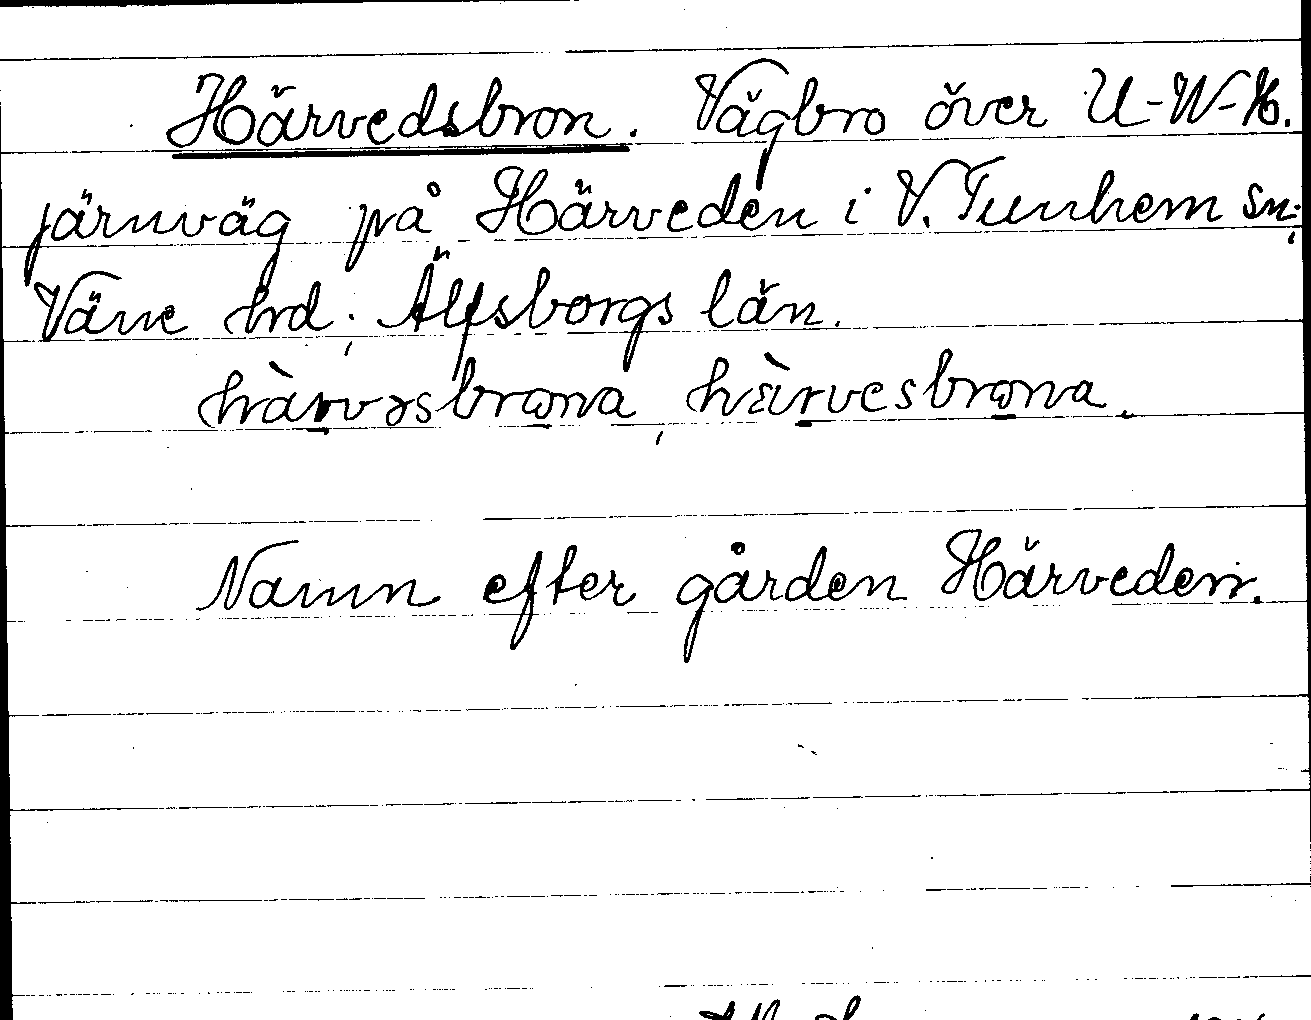 Härvedsbron. Vägbro över U-W-H.
järnväg på Härveden i V. Tunhem sn;
Väne hrd; Älfsborgs län.
hä̀rvəsbrona, hä̀rvesbrona.
Namn efter gården Härveden.